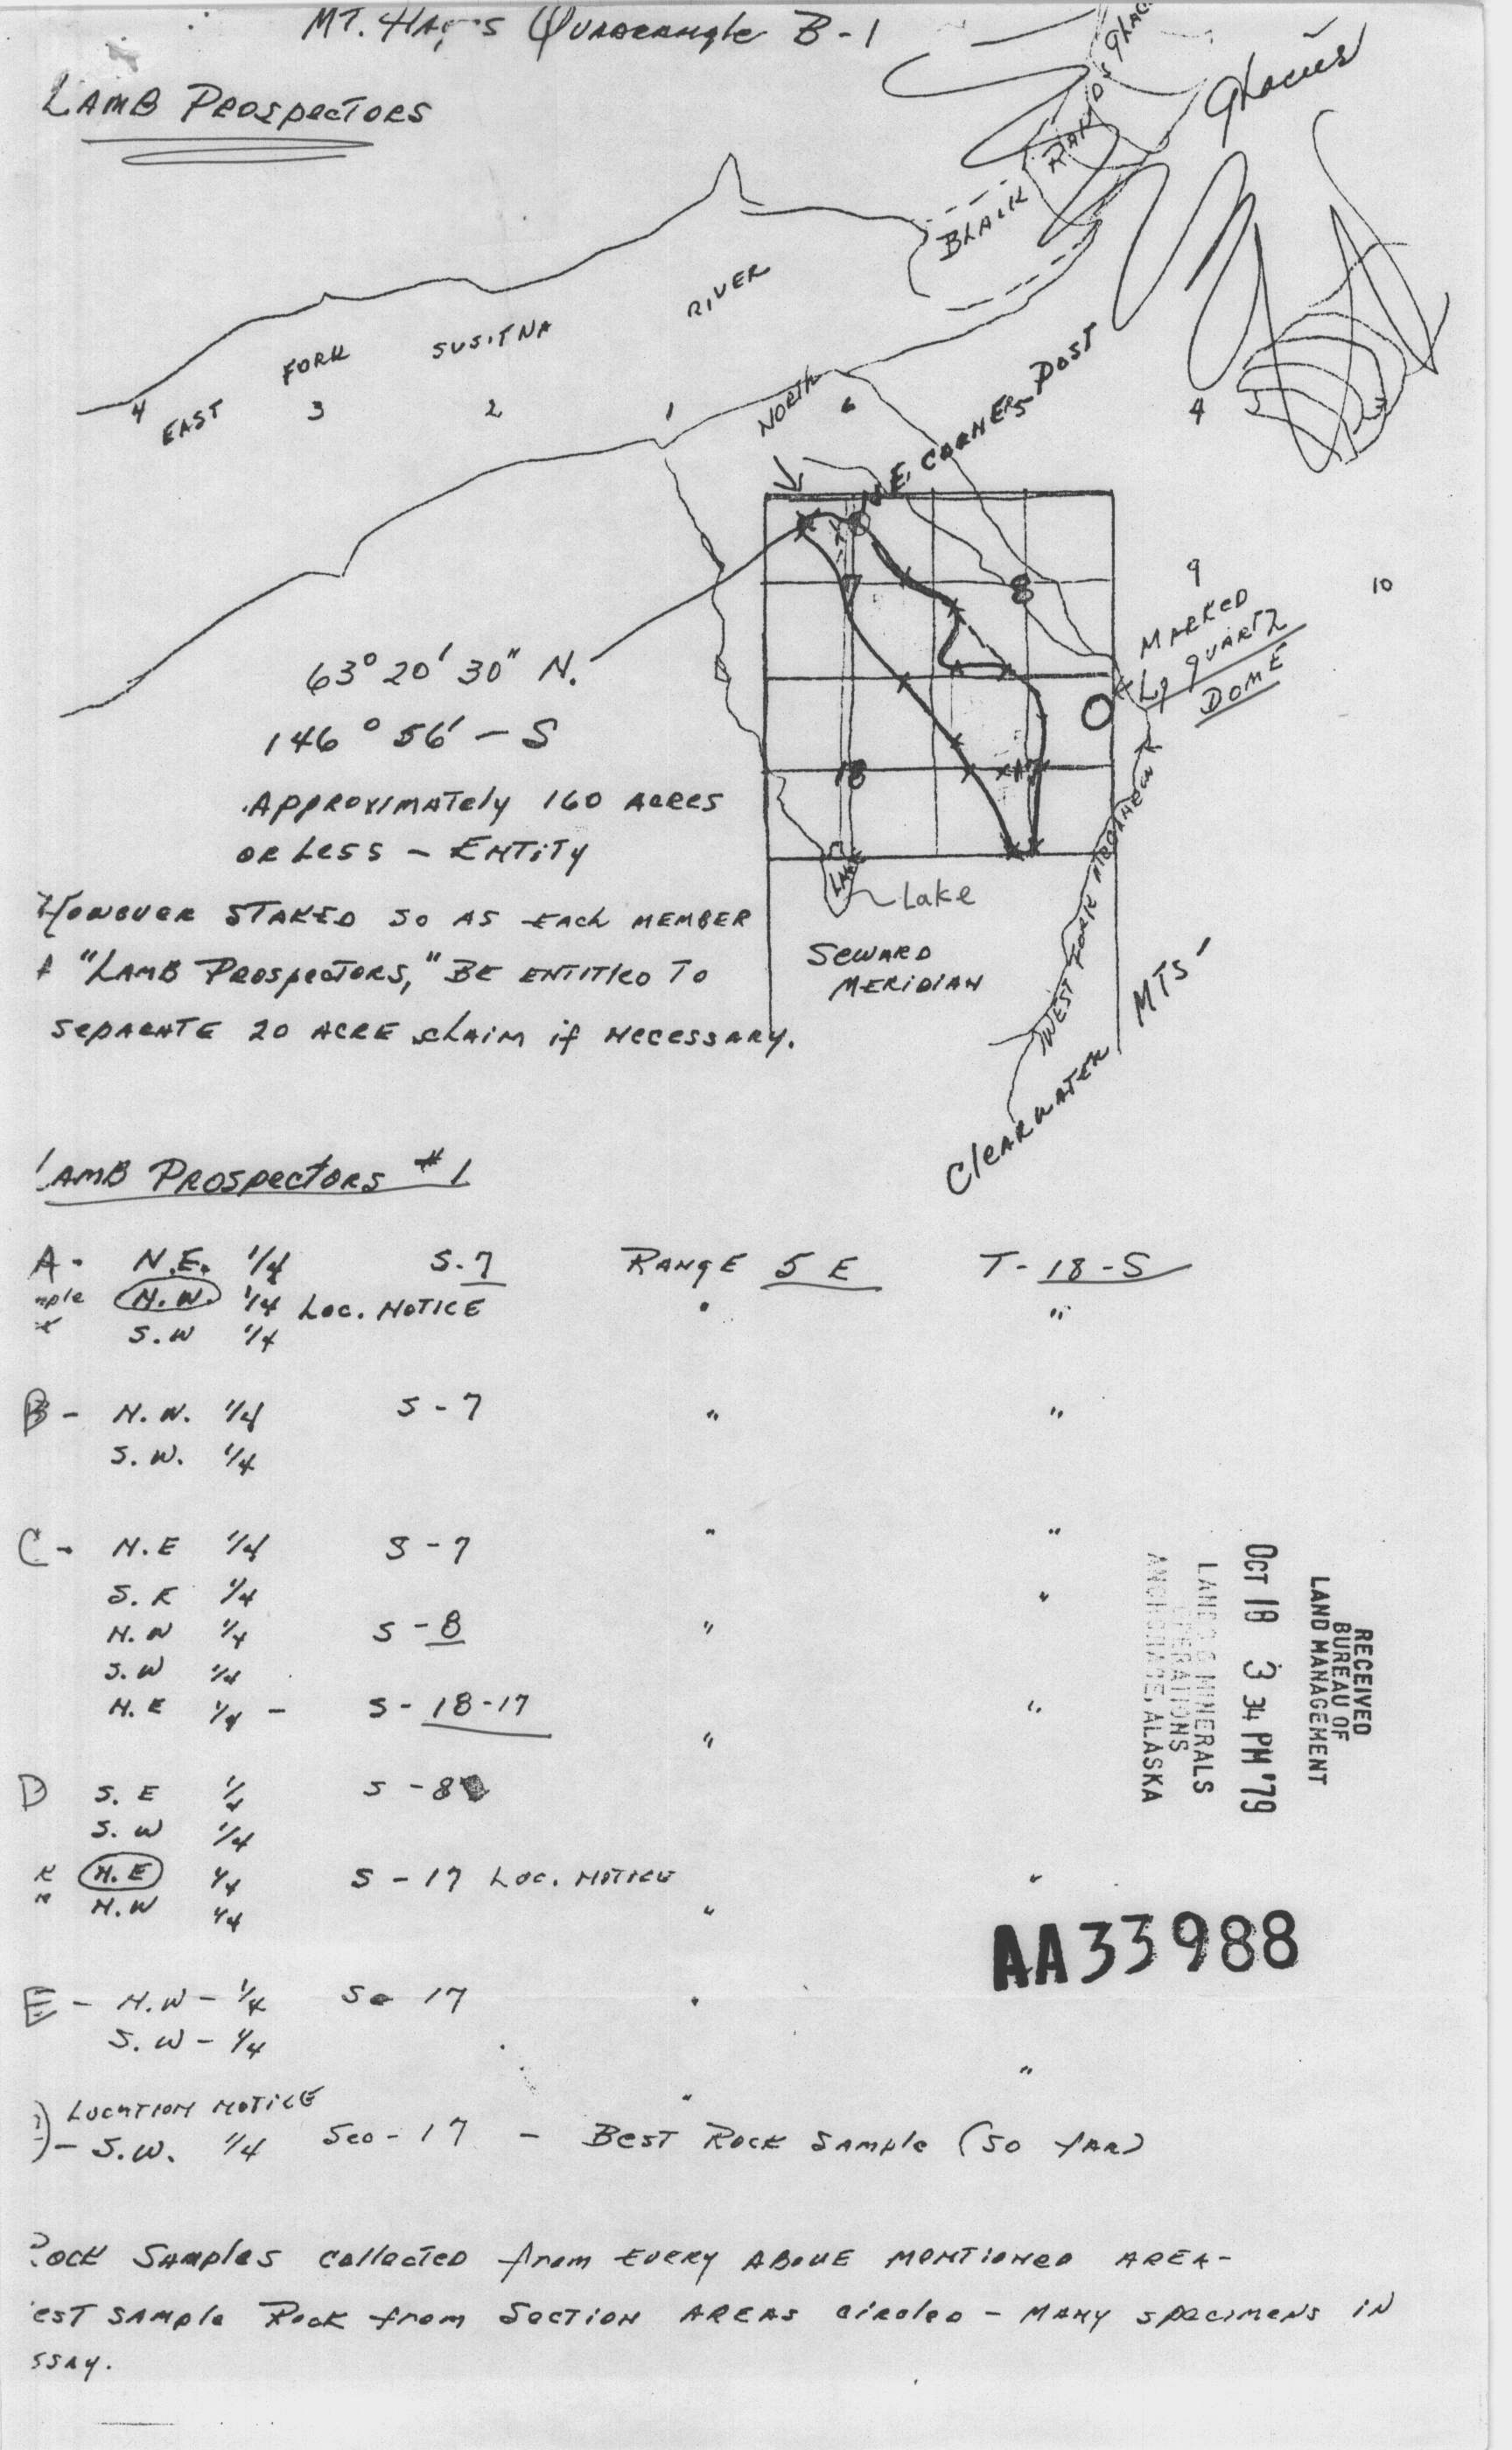 MT. HAYES QUADRANGLE B-1
LAMB PROSPECTORS
BLACK RAPIDS GLAC
GLACIER
EAST FORK SUSITNA RIVER
4 3 2 1 6 4
NORTH
N.E. CORNERS POST
7 8 9 10
MARKED
Lg QUARTZ
DOME
63° 20' 30" N.
146° 56' - S
18 17
APPROXIMATELY 160 ACRES
OR LESS - ENTITY
LAKE
Lake
HOWEVER STAKED SO AS EACH MEMBER
"LAMB PROSPECTORS," BE ENTITLED TO
SEPARATE 20 ACRE CLAIM if NECESSARY.
SEWARD
MERIDIAN
WEST FORK
CLEARWATER MTS
LAMB PROSPECTORS #1
A - N.E. 1/4 S. 7 RANGE 5 E T - 18 - S
mple N.W. 1/4 LOC. NOTICE " "
S.W 1/4
B - N.W. 1/4 S - 7 " "
S.W. 1/4
C - N.E 1/4 S - 7 " "
S.E 1/4 "
N.W 1/4 S - 8 "
S.W 1/4
N.E 1/4 - S - 18 - 17 " "
D S.E 1/4 S - 8
S.W 1/4
N.E 1/4 S - 17 LOC. NOTICE "
N.W 1/4 "
E - N.W - 1/4 Se 17 "
S.W - 1/4 "
LOCATION NOTICE "
- S.W. 1/4 Sec - 17 - BEST ROCK SAMPLE (SO FAR)
ROCK SAMPLES COLLECTED from EVERY ABOVE MENTIONED AREA -
EST SAMPLE ROCK from SECTION AREAS CIRCLED - MANY SPECIMENS IN
SSAY.
RECEIVED
BUREAU OF
LAND MANAGEMENT
OCT 18 3 34 PM '79
LANDS & MINERALS
OPERATIONS
ANCHORAGE, ALASKA
AA33988